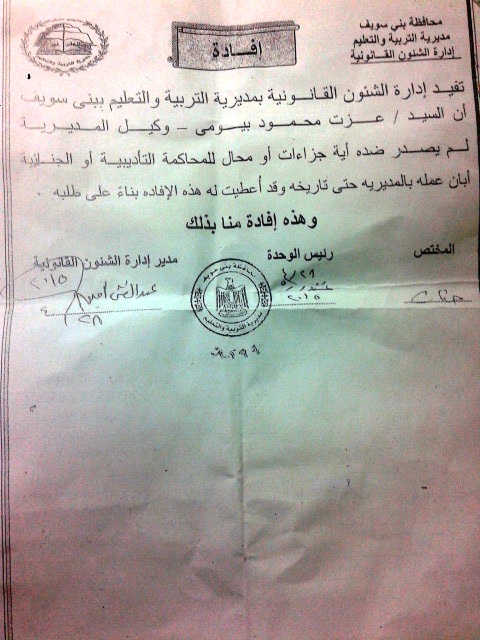 محافظة بني سويف
مديرية التربية والتعليم
إدارة الشئون القانونية
إفادة
تفيد إدارة الشئون القانونية بمديرية التربية والتعليم ببنى سويف
أن السيد / عزت محمود بيومى – وكيل المديرية
لم يصدر ضده أية جزاءات أو محال للمحاكمة التأديبية أو الجنائية
أبان عمله بالمديريه حتى تاريخه وقد أعطيت له هذه الإفاده بناءً على طلبه .
وهذه إفادة منا بذلك
المختص
رئيس الوحدة
مدير إدارة الشئون القانونية
٤/٢٩
٢٠١٥
٢٠١٥
محافظة بني سويف
مديرية التربية والتعليم